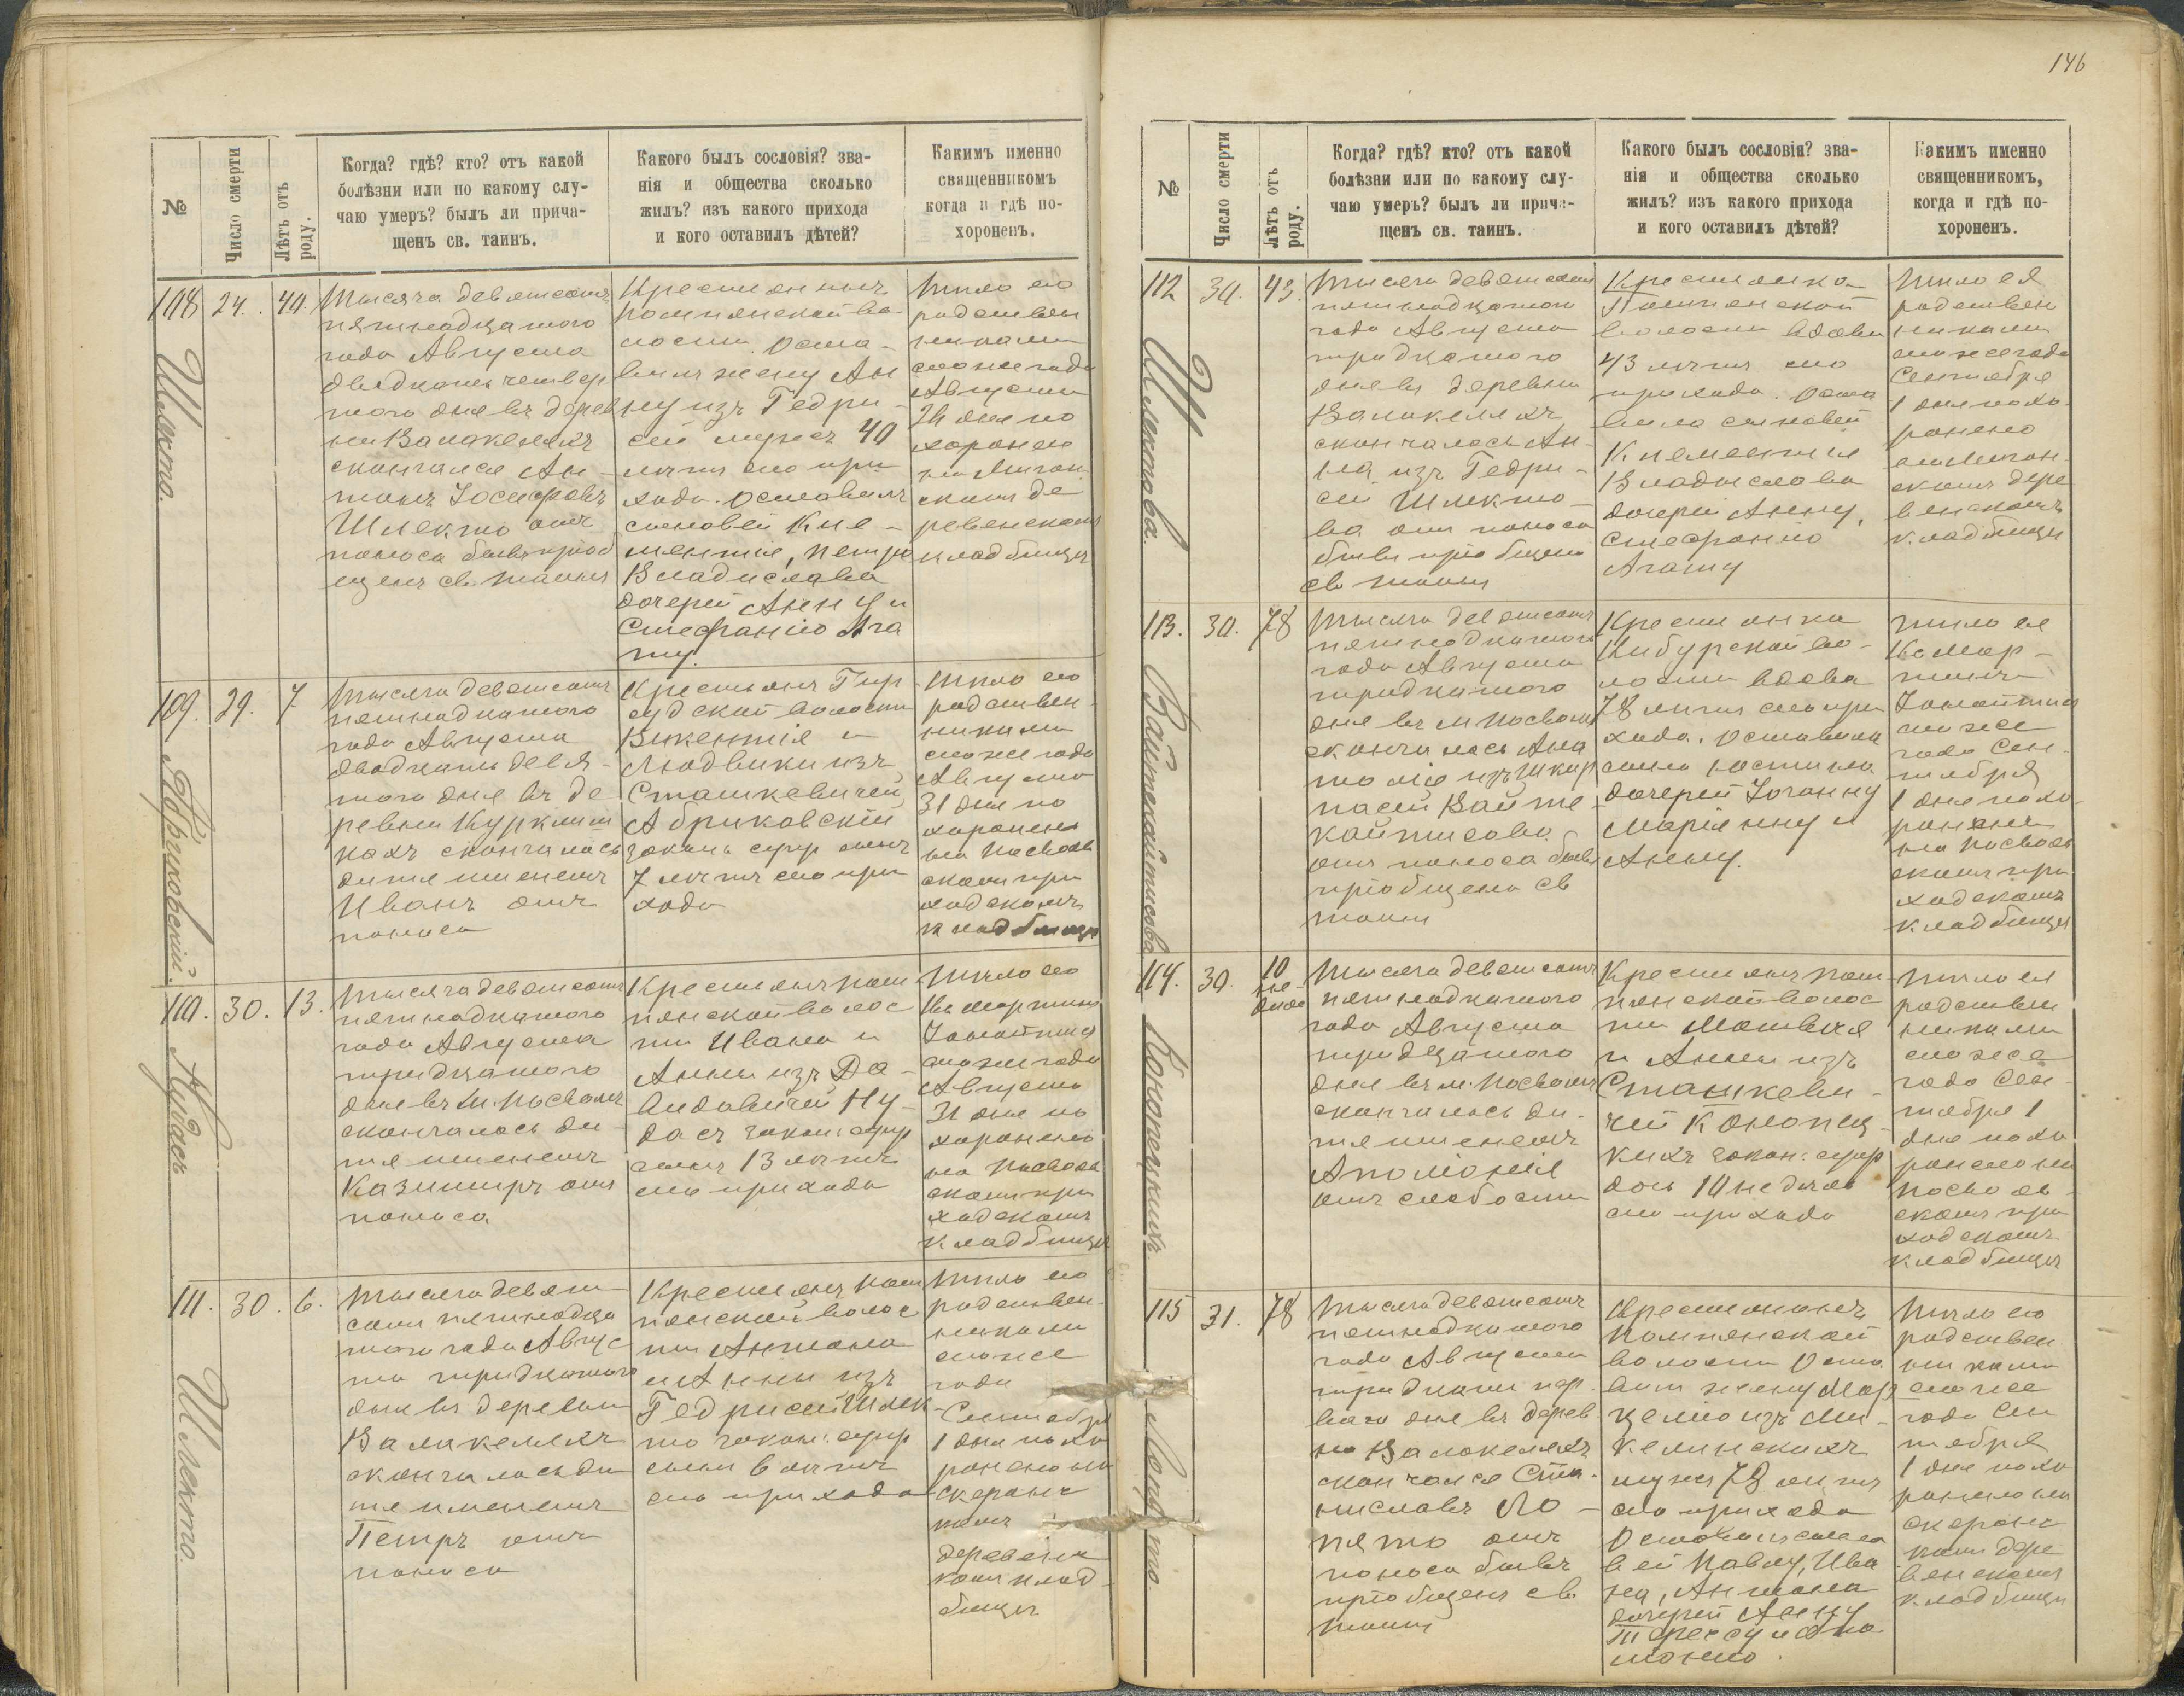 146
№
Число смерти
Лѣтъ отъ роду.
Когда? гдѣ? кто? отъ какой
болѣзни или по какому слу-
чаю умеръ? былъ ли прича-
щенъ св. таинъ.
Какого былъ сословія? зва-
нія и общества сколько
жилъ? изъ какого прихода
и кого оставилъ дѣтей?
Какимъ именно
священникомъ
когда и гдѣ по-
хороненъ.
108
24.
40.
Шлекто.
Тысяча девятсотъ
пятнадцатого
года Августа
двадцать четвер
того дня въ дерев
ни Валакеляхъ
скончался Ан-
тонъ Іосифовъ
Шлекто отъ
поноса бывъ пріоб
щенъ св. таинъ
Крестьянинъ
Помпянской во-
лости. Оста-
вилъ жену Ан
ну изъ Гедри-
сей мужъ 40
лѣтъ сего при
хода. Оставилъ
сыновей Кле-
ментія, Петра
Владислава
дочерей Анну и
Стефанію Ага
ту.
Тѣло его
родствен
никами
сего же года
Августа
26 дня по
хоронено
на
скомъ де
ревенскомъ
кладбищѣ
109.
29.
7
Абриковскій.
Тысяча девятсотъ
пятнадцатого
года Августа
двадцать девя-
того дня въ де
ревни Куркли
кахъ скончалось
дитя именемъ
Иванъ отъ
поноса
Крестьянъ Гир
судской волости
Викентія и
Людвики изъ
Сташкевичей
Абриковскій
законъ супр сынъ
7 лѣтъ сего при
хода
Тѣло его
родствен
никами
сего же года
Августа
31 дня по
хоронено
на Посволь
скомъ при
ходскомъ
кладбищѣ
110.
30.
13.
Нудасъ
Тысяча девятсотъ
пятнадцатого
года Августа
тридцатого
дня въ м. Посволѣ
скончалось ди-
тя именемъ
Казимиръ отъ
поноса.
Крестьянъ Пом
пянской волос
ти Ивана и
Анны изъ Да-
видовичей Ну-
дасъ закон: супр
сынъ 13 лѣтъ
сего прихода
Тѣло его
Кс. Мартинъ
сего же года
Августа
31 дня по
хоронено
на Посволь
скомъ при
ходскомъ
кладбищѣ
111.
30.
6.
Шлекто.
Тысяча девят
сотъ пятнадца
того года Авгус
та тридцатого
дня въ деревни
Валакеляхъ
скончалось ди
тя именемъ
Петръ отъ
поноса
Крестьянъ Пом
пянской волос
ти Антона
и Анны изъ
Гедрисей Шлек-
то закон: супр
сынъ 6 лѣтъ
сего прихода
Тѣло его
родствен
никами
сего же
года
Сентября
1 дня похо
ронено на
деревенс
комъ клад-
бищѣ
№
Число смерти
Лѣтъ отъ роду.
Когда? гдѣ? кто? отъ какой
болѣзни или по какому слу-
чаю умеръ? былъ ли прича-
щенъ св. таинъ.
Какого былъ сословія? зва-
нія и общества сколько
жилъ? изъ какого прихода
и кого оставилъ дѣтей?
Какимъ именно
священникомъ,
когда и гдѣ по-
хороненъ.
112
30.
43.
Шлектова.
Тысяча девятсотъ
пятнадцатого
года Августа
тридцатого
дня въ деревни
Валакеляхъ
скончалась Ан-
на изъ Гедри-
сей Шлекто-
ва отъ поноса
бывъ пріобщена
св таинъ
Крестьянка
Помпянской
волости вдова
43 лѣтъ сего
прихода. Оста
вила сыновей
Клементія
Владислава
дочерей Анну,
Стефанію
Агату
Тѣло ея
родствен
никами
сего же года
Сентября
1 дня похо
ронено
скомъ дере
венскомъ
кладбищѣ
113.
30.
78
Вайтекайтисова
Тысяча девятсотъ
пятнадцатого
года Августа
тридцатого
дня въ м Посволѣ
скончалась Ана
толія изъ Шкар
пасей Вайте
кайтисова
отъ поноса бывъ
пріобщена св
таинъ
Крестьянка
Кибурской во-
лости вдова
78 лѣтъ сего при
хода. Оставила
сына Юстина
дочерей Іоганну
Маріянну и
Анну.
Тѣло ея
Кс Мар-
тинъ
сего же
года Сен-
тября
1 дня похо-
ронено
на Посволь
скомъ при
ходскомъ
кладбищѣ
114.
30.
10
не-
дѣль
Кононецкихъ.
Тысяча девятсотъ
пятнадцатого
года Августа
тридцатого
дня въ м. Посволѣ
скончалось ди-
тя именемъ
Аполіонія
отъ слабости
Крестьянъ Пом-
пянской волос
ти Матвея
и Анны изъ
Сташкеви-
чей Кононец-
кихъ закон: супр
дочь 10 недѣль
сего прихода
Тѣло ея
родствен
никами
сего же
года Сен-
тября 1
дня похо
ронено на
Посволь
скомъ при
ходскомъ
кладбищѣ
115
31.
78
Лопято
Тысяча девятсотъ
пятнадцатого
года Августа
тридцать пер-
ваго дня въ дерев
ни Валакеляхъ
скончался Ста-
ниславъ Ло-
пято отъ
поноса бывъ
пріобщенъ св
таинъ
Крестьянинъ
Помпянской
волости Оста
вилъ жену Мар
целію изъ Ми-
келинскихъ
мужъ 78 лѣтъ
сего прихода
Оставилъ сыно
вей Павлу, Ива
на, Антона
дочерей Анну
Терессу и
Тѣло его
родствен
никами
сего же
года Сен
тября
1 дня похо
ронено на
комъ дере
венскомъ
кладбищѣ